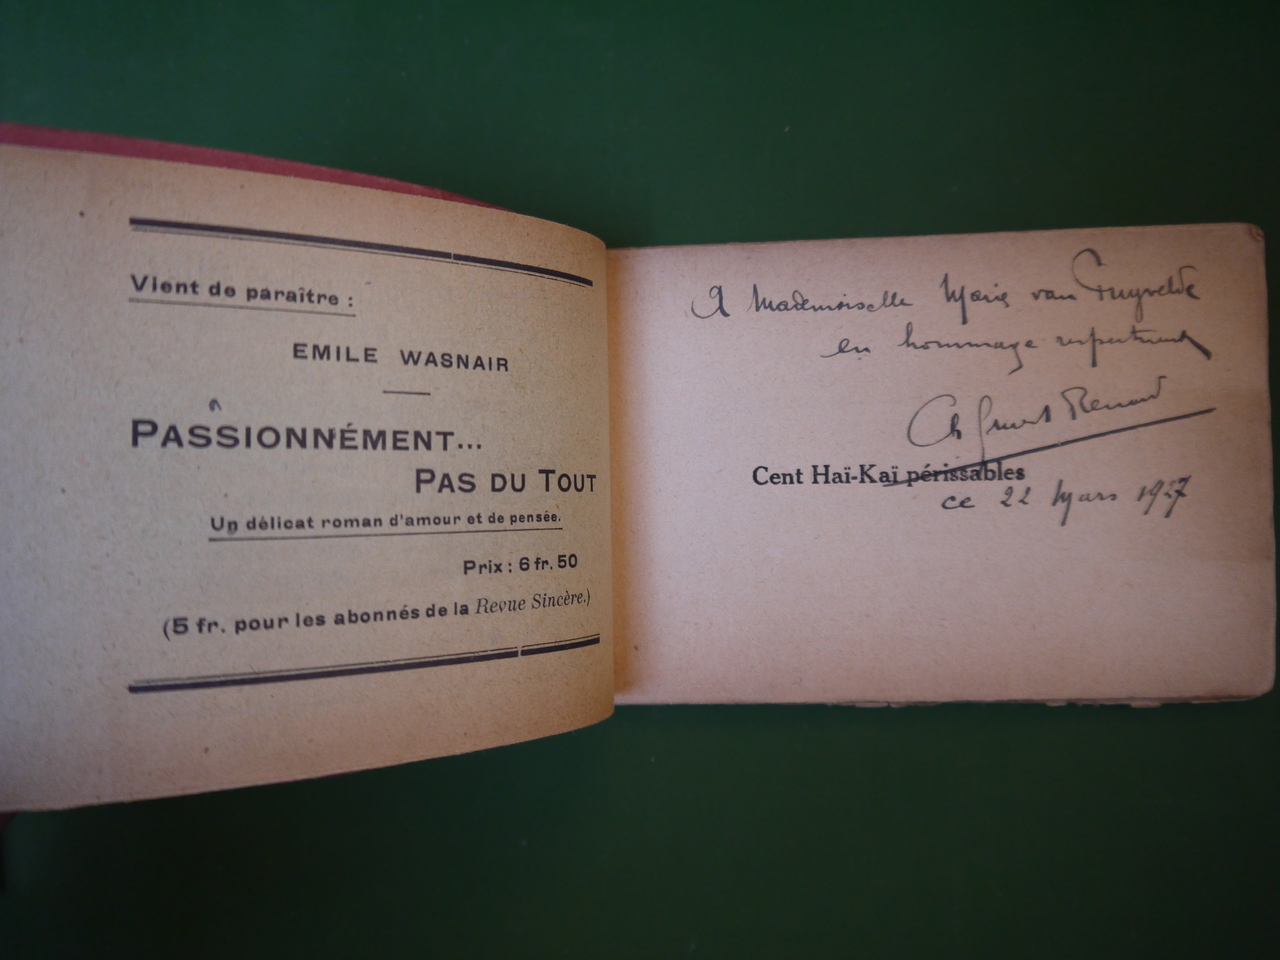 Vient de paraître :
EMILE WASNAIR
PASSIONNÉMENT...
PAS DU TOUT
Un délicat roman d'amour et de pensée.
Prix : 6 fr. 50
(5 fr. pour les abonnés de la Revue Sincère.)
A Mademoiselle Marie van Puyvelde
en hommage respectueux
Ch Gruest Renard
Cent Haï-Kaï périssables
ce 22 Mars 1927